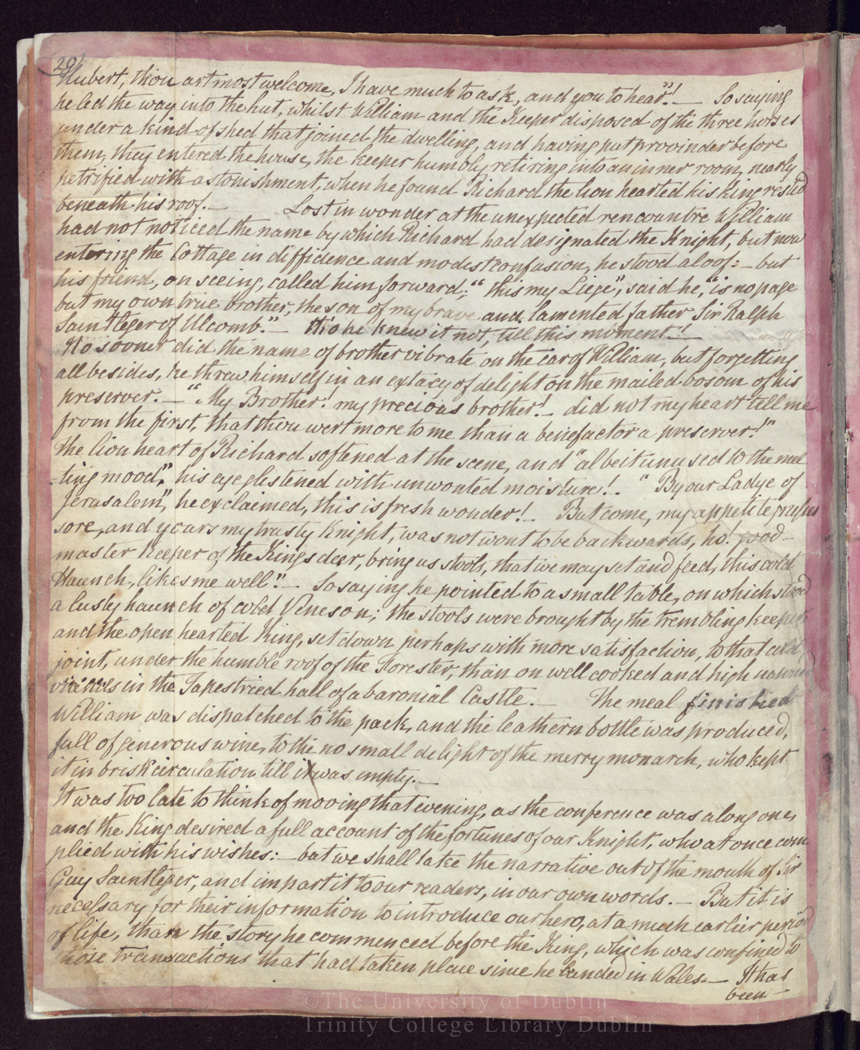 20
Hubert, thou art most welcome, I have much to ask, and you to hear"! — So saying
he led the way into the hut, whilst William and the Keeper disposed of the three horses
under a kind of shed that joined the dwelling, and having put provinder before
them, they entered the house, the keeper humbly retiring into an inner room, nearly
petrified with astonishment, when he found Richard the lion hearted his King rested
beneath his roof. — Lost in wonder at the unexpected rencountre William
had not noticed the name by which Richard had designated the Knight, but now
entering the Cottage in diffidence and modest confusion, he stood aloof: — but
his friend, on seeing, called him forward. "this my Liege", said he, "is no page
but my own true brother, the son of my brave and lamented father Sir Ralph
Saintleger of Ulcomb." — tho he knew it not, till this moment! —
No sooner did the name of brother vibrate on the ear of William, but forgetting
all besides, he threw himself in an extacy of delight on the mailed bosom of his
preserver. — "My Brother! my precious brother! — did not my heart tell me
from the first, that thou wert more to me than a benefactor a preserver!"
the lion heart of Richard softened at the scene, and "albeit unused to the mel
-ting mood", his eye glistened with unwonted moisture! .. "By our Ladye of
Jerusalem", he exclaimed, this is fresh wonder! — But come, my appetite
sore, and yours my trusty Knight, was not wont to be backwards, ho! good —
master Keeper of the Kings deer, bring us stools, that we may set and feed, this cold
Haunch, likes me well"! — So saying he pointed to a small table, on which stood
a lusty haunch of cold Veneson; the stools were brought by the trembling keeper
and the open hearted King, set down perhaps with more satisfaction, to that cold
joint, under the humble roof of the Forester, than on well cooked and high
viands in the Tapestried hall of a baronial Castle. — The meal finished
William was dispatched to the pack, and the leathern bottle was produced,
full of generous wine, to the no small delight of the merry monarch, who kept
it in brisk circulation till it was empty. —
It was too late to think of moving that evening, as the conference was a long one,
and the King desired a full account of the fortunes of our Knight, who at once com
plied with his wishes: — but we shall take the narrative out of the mouth of Sir
Guy Saintleger, and impart it to our readers, in our own words. — But it is
necessary for their information to introduce our hero, at a much earlier period
of life, than the story he commenced before the King, which was confined to
those transactions that had taken place since he landed in Wales — It has
been —
© The University of Dublin
Trinity College Library Dublin